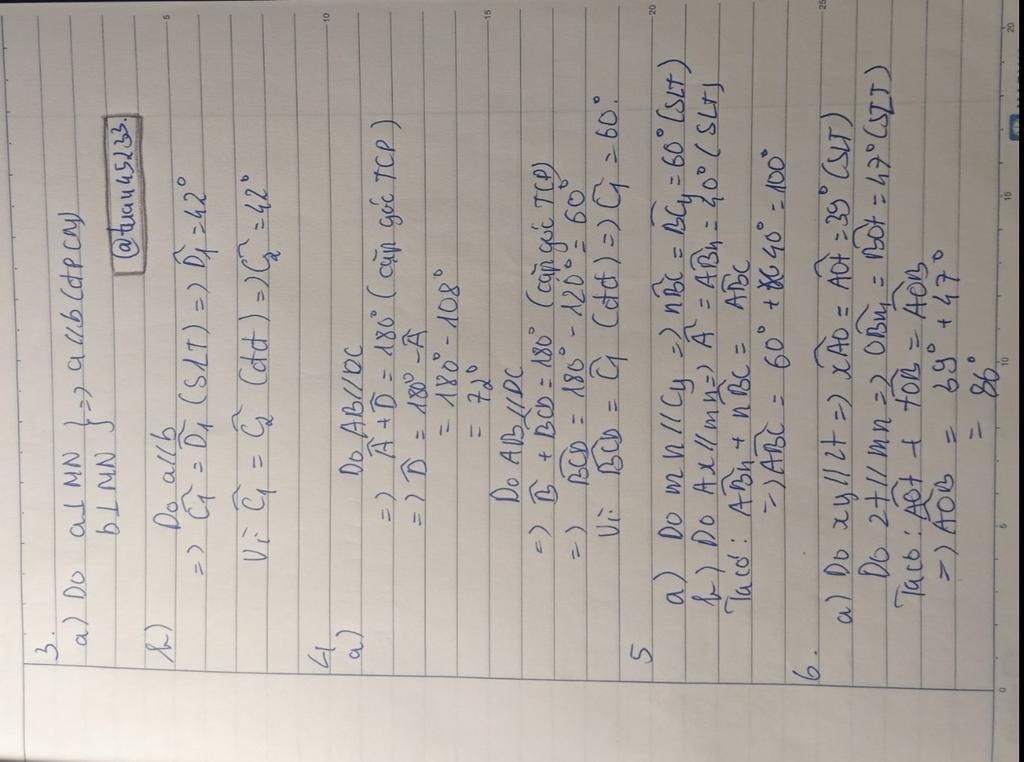 3.
a) Do a⊥ MN } => a//b (ĐPCM)
b⊥ MN
@tuan45233
b) Do a//b
=> Ĉ1 = D̂1 (SLT) => D̂1 = 42°
Vì Ĉ1 = Ĉ2 (đđ) => Ĉ2 = 42°
4
a) Do AB//DC
=> Â + D̂ = 180° (cặp góc TCP)
=> D̂ = 180° - Â
= 180° - 108°
= 72°
Do AB//DC
=> B̂ + BCD = 180° (cặp góc TCP)
=> BCD = 180° - 120° = 60°
Vì BCD = Ĉ1 (đđ) => Ĉ1 = 60°.
5
a) Do mn//Cy => nBC = BCy = 60° (SLT)
b) Do Ax//mn => Â = ABn = 40° (SLT)
Ta có: ABn + nBC = ABC
=> ABC = 60° + 40° = 100°
6.
a) Do xy//zt => xAO = AOt = 39° (SLT)
Do zt//mn => OBn = BOt = 47° (SLT)
Ta có: AOt + tOB = AOB
=> AOB = 39° + 47°
= 86°
5
10
15
20
25
0
5
10
15
20